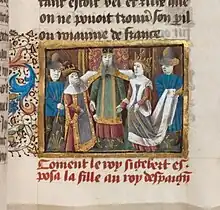 tant estoit bel et
on ne pouoit trouuer son pil
ou roiaume de france.
Coment le roy sigebert es-
posa la fille au roy despaigne